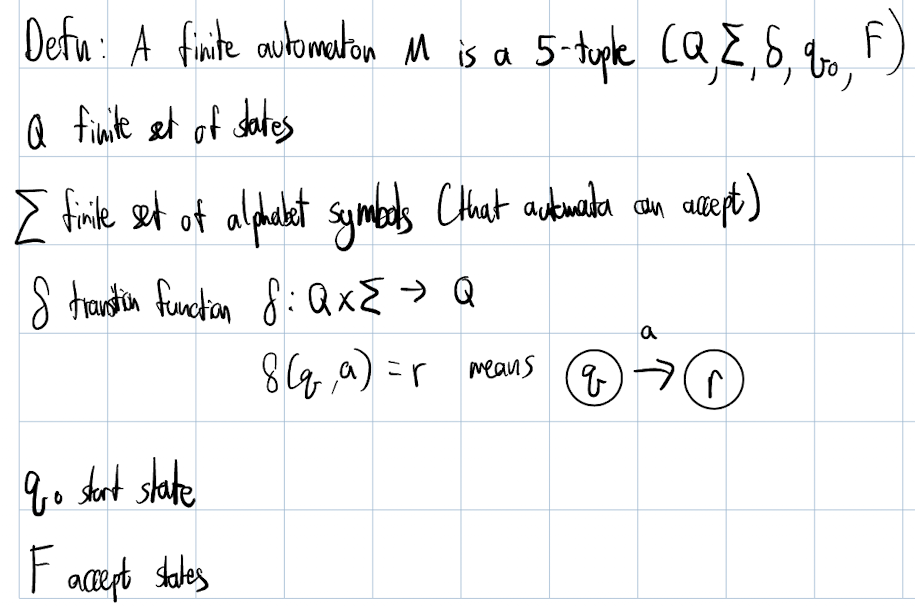 Defn: A finite automaton M is a 5-tuple (Q, Σ, δ, q₀, F)
Q finite set of states
Σ finite set of alphabet symbols (that automata can accept)
δ transition function δ: Q×Σ → Q
δ(q, a) = r means q a→ r
q₀ start state
F accept states